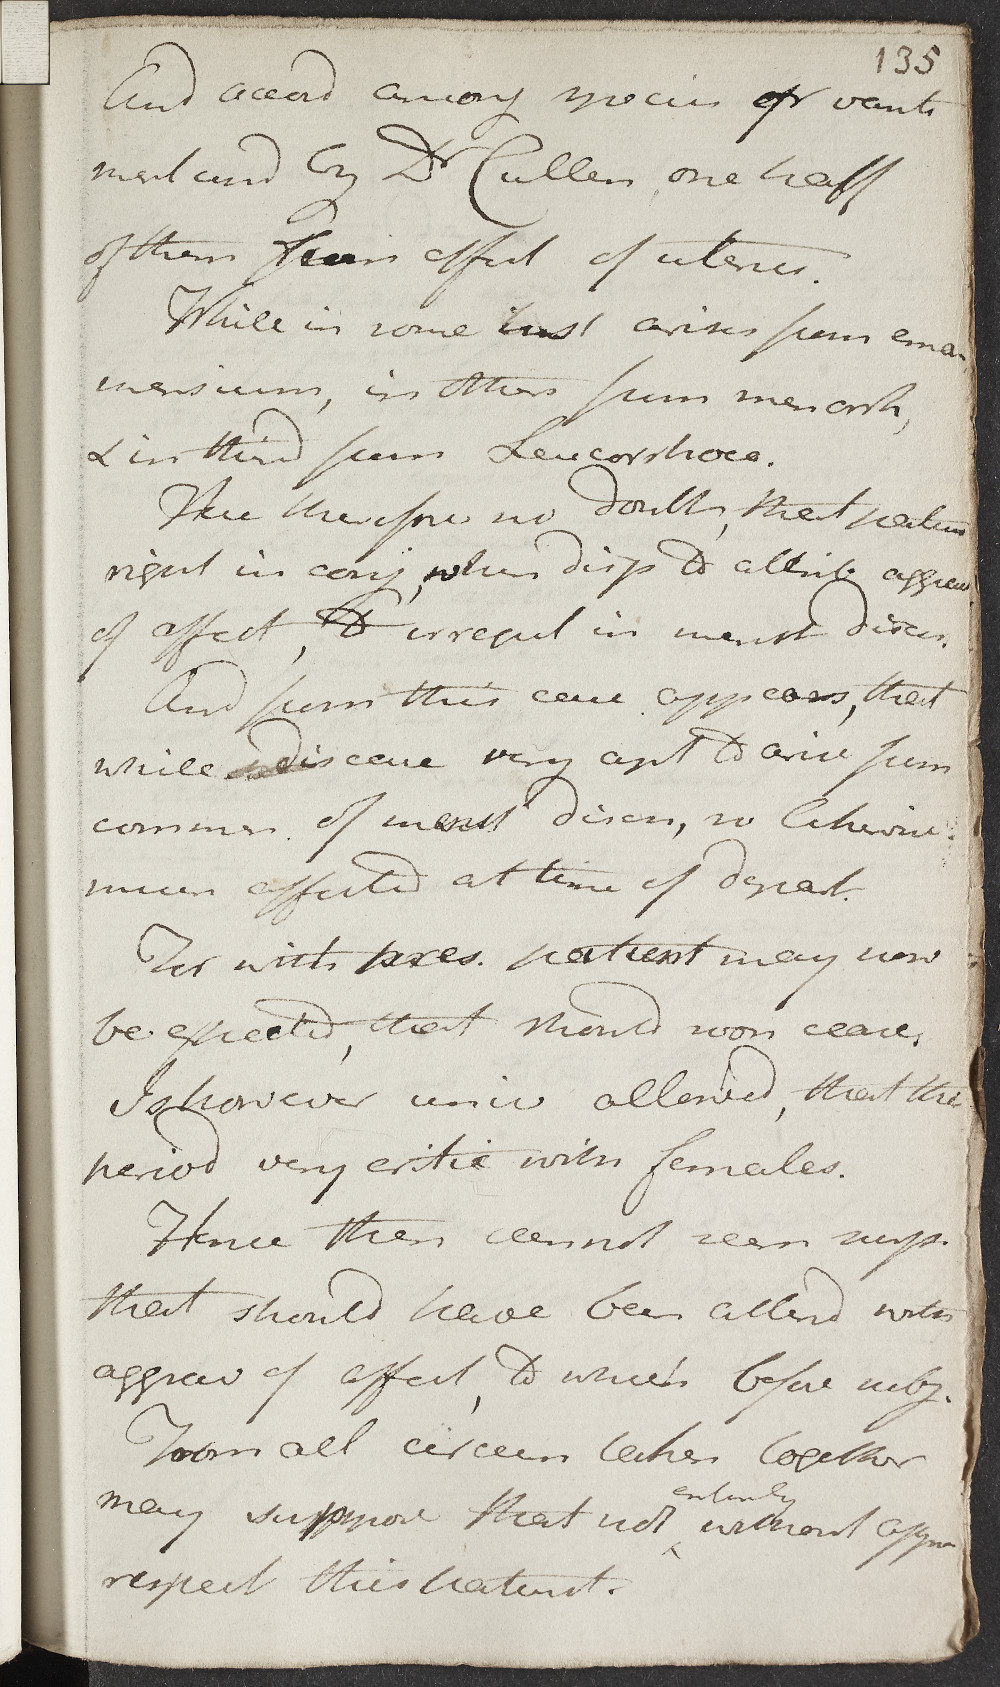 135
And accord among species of wants
ment und by Dr Cullen, one half
of them from affect of uterus.
While in some inst arises from eman
mensium, in others from menorrh,
& in third from Leucorrhoea.
Have therefore no doubt, that patien
right in conj, when disp to attrib aggrav
of affect, to irregul in menst discn.
And from this case appears, that
while disease very apt to arise from
commen. of menst discn, so likewise
much affected at time of depart.
For with pres. patient may now
be expected, that should soon cease.
Is however univ allowed, that this
period very critic with females.
Hence then cannot seem surp.
that should have been attend with
aggrav of affect, to which before subj.
From all circum taken together
may suppose that not entirely without appre
respect this patient.